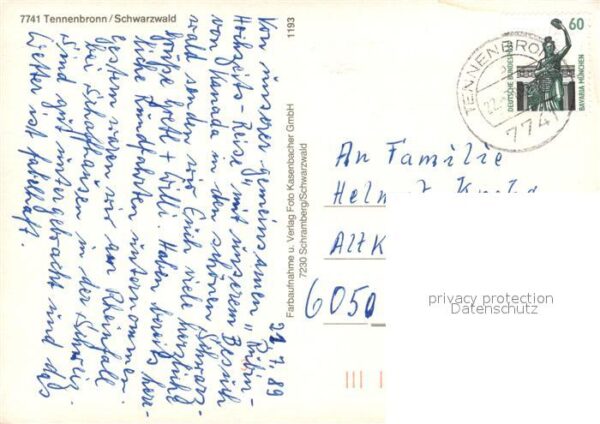 7741 Tennenbronn/Schwarzwald
1193
21.7.89
Von unserer gemeinsamen "Rubin-
Hochzeits-Reise" mit unserem Besuch
von Kanada in den schönen Schwarz-
wald senden wir Euch viele herzliche
Grüße Gretl + Willi. Haben bereits herr-
liche Rundfahrten unternommen.
Gestern waren wir am Rheinfall
bei Schaffhausen in der Schweiz.
Sind gut untergebracht und das
Wetter ist fabelhaft.
Farbaufnahme u. Verlag Foto Kasenbacher GmbH
7230 Schramberg/Schwarzwald
60
DEUTSCHE BUNDESPOST
BAVARIA MÜNCHEN
TENNENBRO
774
An Familie
Helm
Altk
6050
privacy protection
Datenschutz